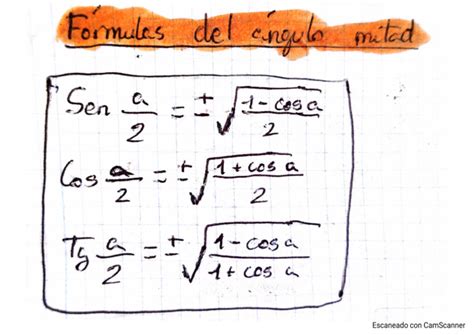 Fórmulas del ángulo mitad
Sen a/2 = ± √(1 - cos a / 2)
Cos a/2 = ± √(1 + cos a / 2)
Tg a/2 = ± √(1 - cos a / 1 + cos a)
Escaneado con CamScanner